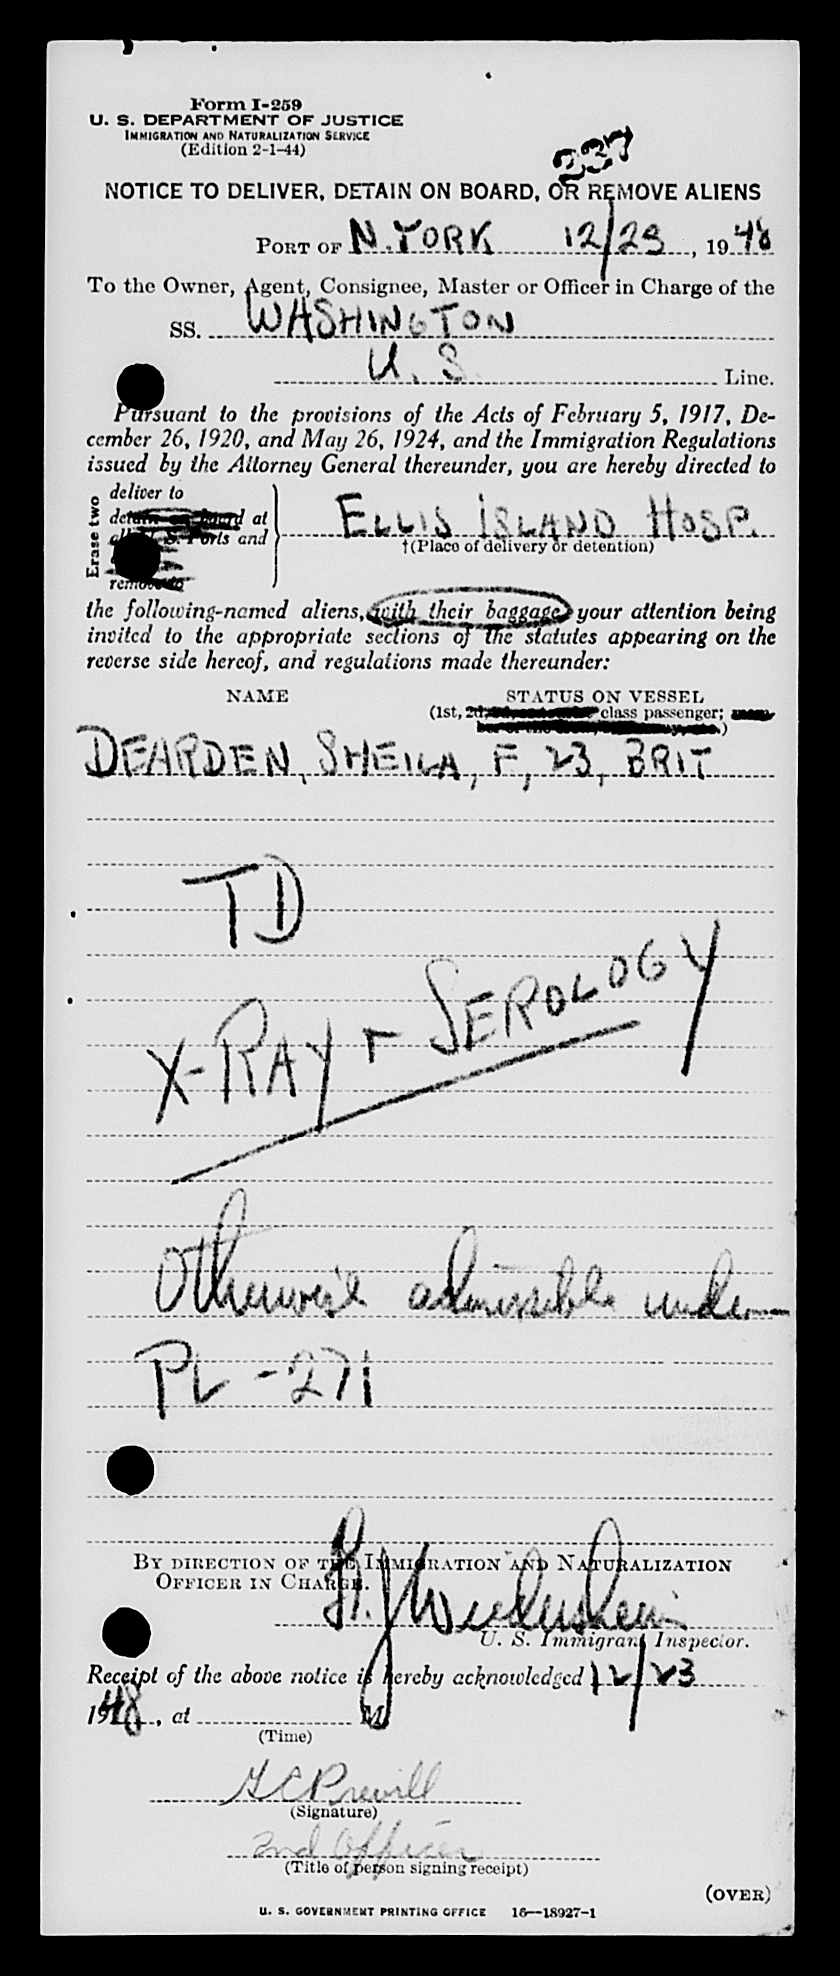 Form I-259
U. S. DEPARTMENT OF JUSTICE
IMMIGRATION AND NATURALIZATION SERVICE
(Edition 2-1-44)
237
NOTICE TO DELIVER, DETAIN ON BOARD, OR REMOVE ALIENS
PORT OF N. YORK 12/23, 1948
To the Owner, Agent, Consignee, Master or Officer in Charge of the
SS. WASHINGTON
U. S. Line.
Pursuant to the provisions of the Acts of February 5, 1917, De-
cember 26, 1920, and May 26, 1924, and the Immigration Regulations
issued by the Attorney General thereunder, you are hereby directed to
Erase two
deliver to
detain on board at
all U. S. Ports and
remove to
ELLIS ISLAND HOSP.
†(Place of delivery or detention)
the following-named aliens, with their baggage, your attention being
invited to the appropriate sections of the statutes appearing on the
reverse side hereof, and regulations made thereunder:
NAME STATUS ON VESSEL
(1st, 2d, class passenger;
DEARDEN, SHEILA, F, 23, BRIT
TD
X-RAY + SEROLOGY
Otherwise admissible under
PL - 271
BY DIRECTION OF THE IMMIGRATION AND NATURALIZATION
OFFICER IN CHARGE.
U. S. Immigrant Inspector.
Receipt of the above notice is hereby acknowledged 12/23
1948, at M.
(Time)
(Signature)
2nd Officer
(Title of person signing receipt)
(OVER)
U. S. GOVERNMENT PRINTING OFFICE 16—18927-1